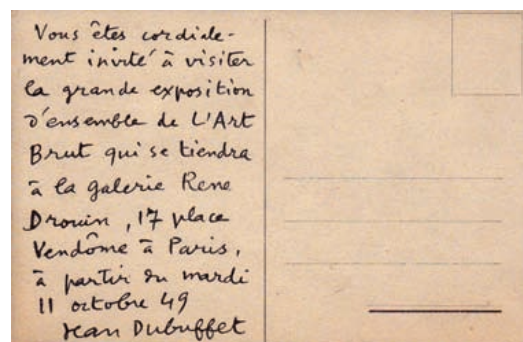 Vous êtes cordiale-
ment invité à visiter
la grande exposition
d'ensemble de L'Art
Brut qui se tiendra
à la galerie Rene
Drouin, 17 place
Vendôme à Paris,
à partir du mardi
11 octobre 49
Jean Dubuffet